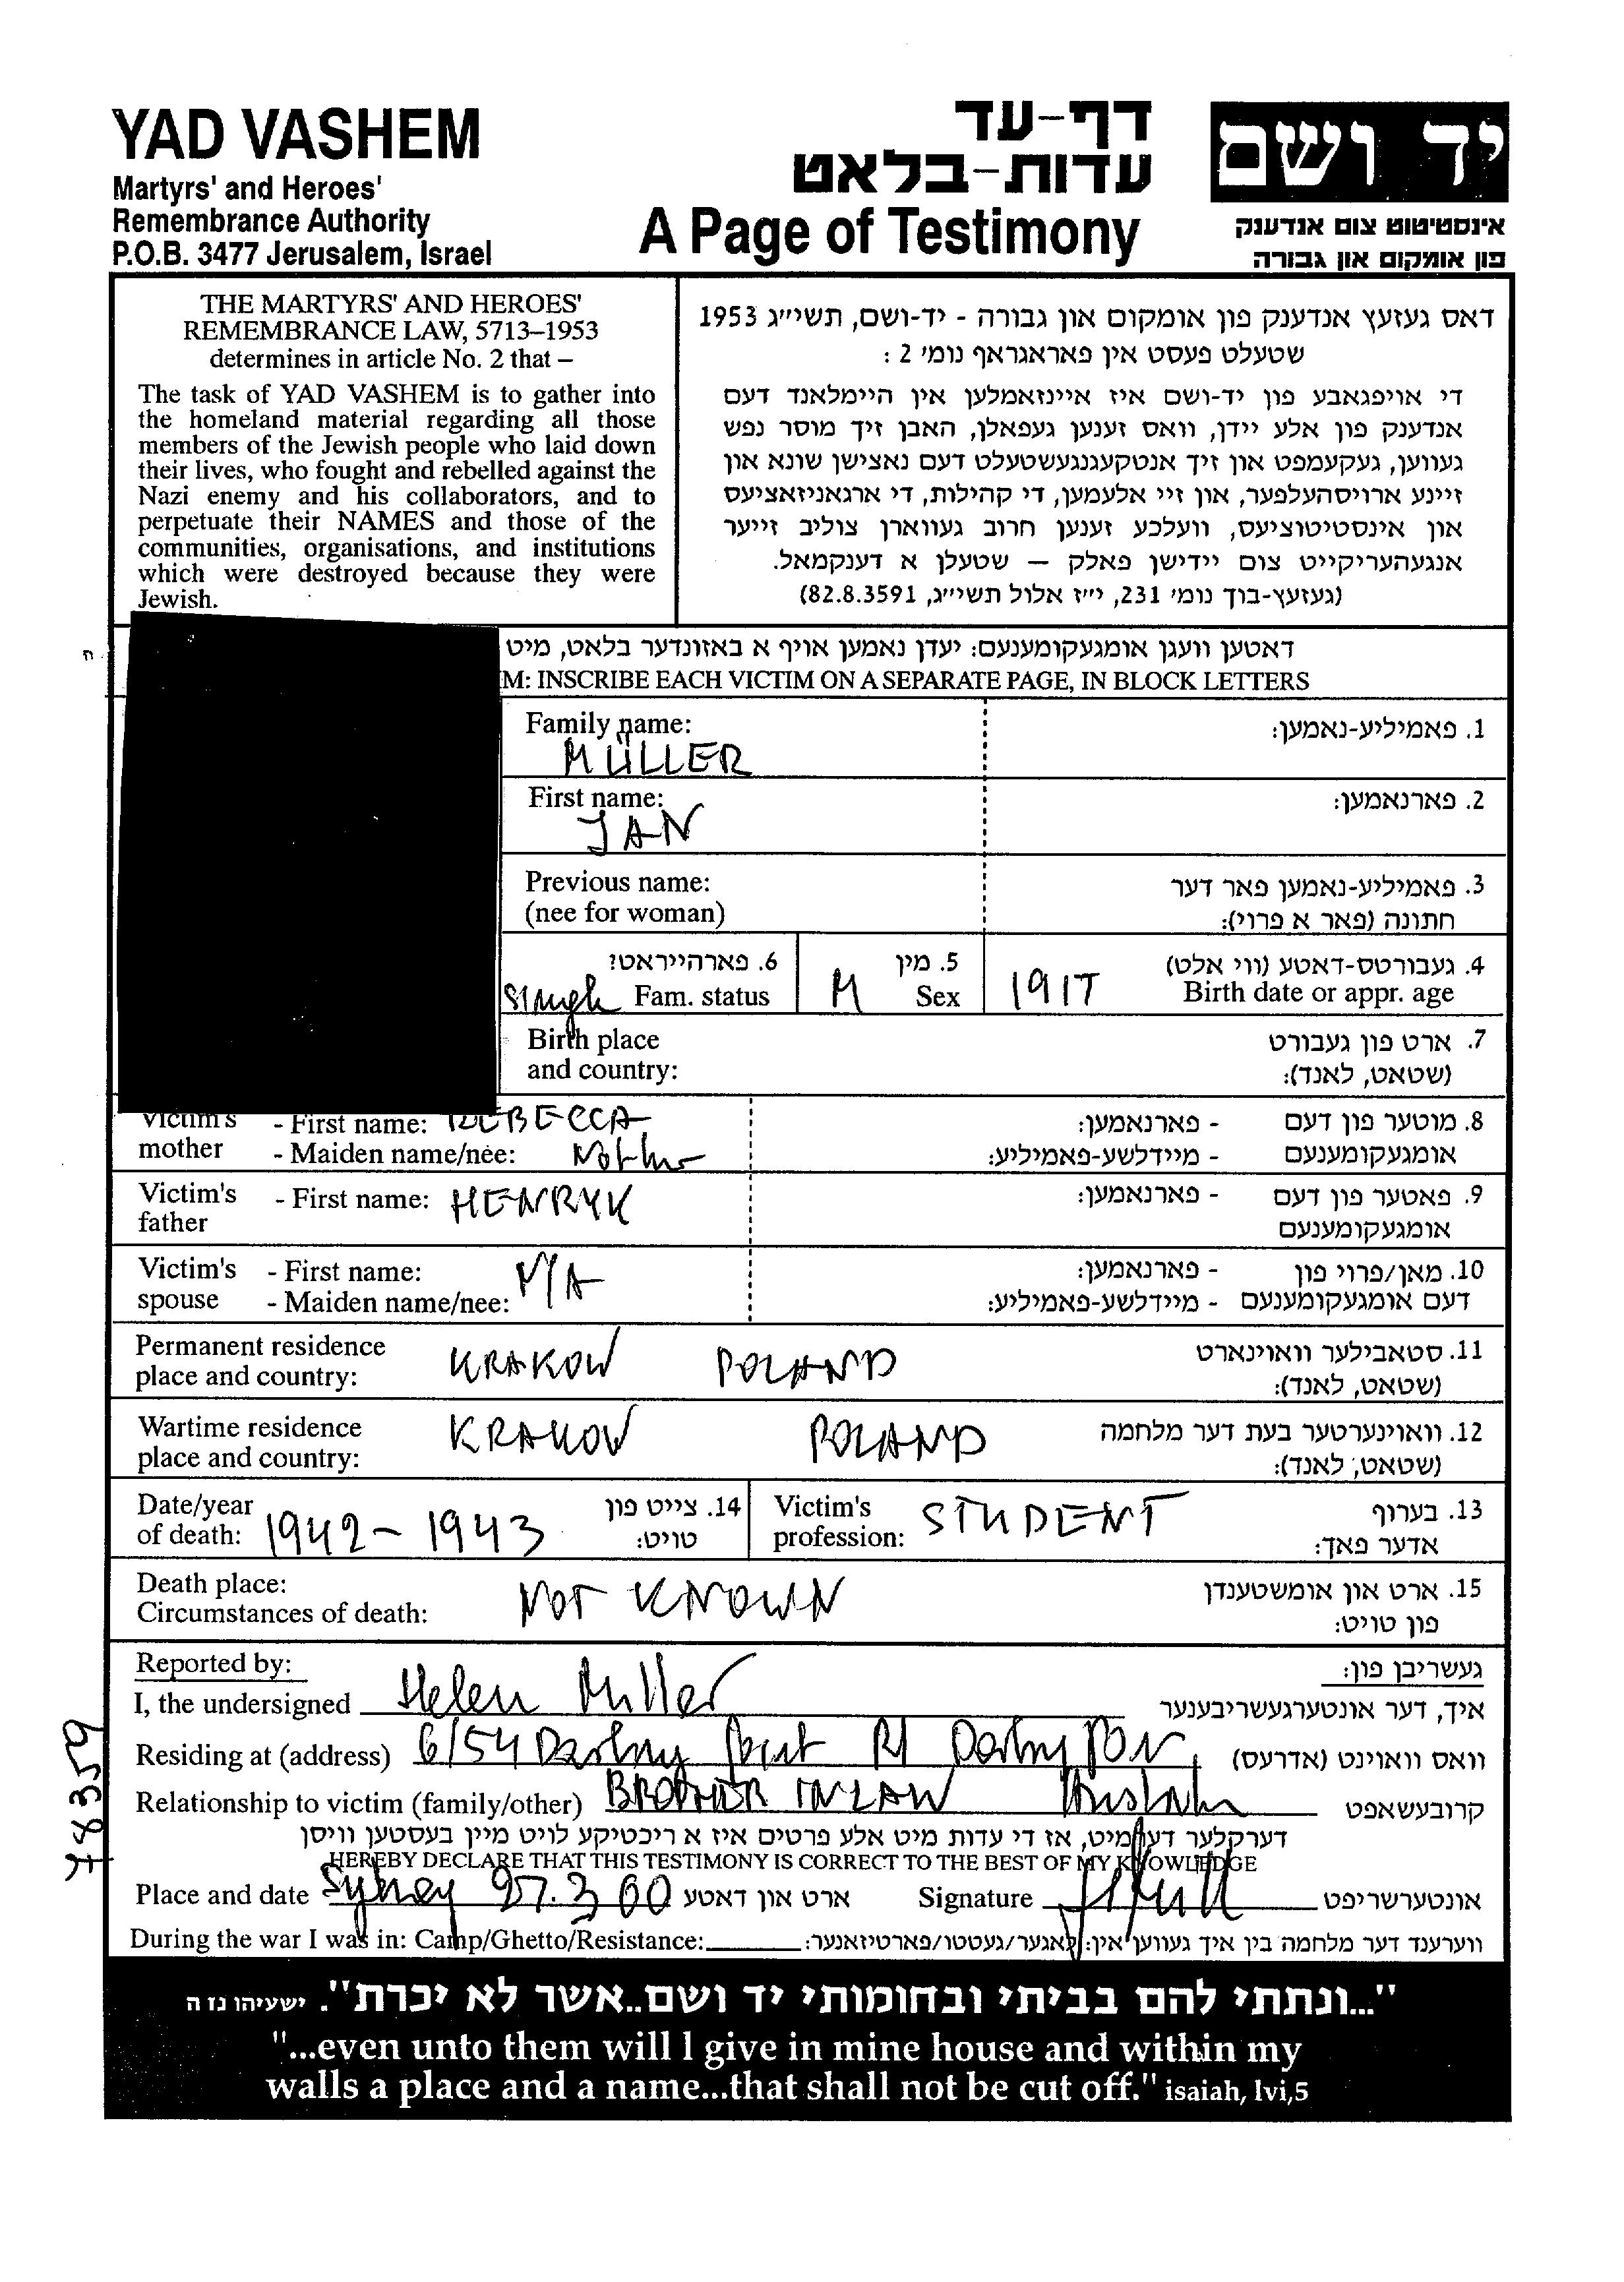 YAD VASHEM
Martyrs' and Heroes'
Remembrance Authority
P.O.B. 3477 Jerusalem, Israel
דף-עד
עדות-בלאט
A Page of Testimony
יד ושם
אינסטיטוט צום אנדענק
פון אומקום און גבורה
THE MARTYRS' AND HEROES'
REMEMBRANCE LAW, 5713–1953
determines in article No. 2 that –
The task of YAD VASHEM is to gather into
the homeland material regarding all those
members of the Jewish people who laid down
their lives, who fought and rebelled against the
Nazi enemy and his collaborators, and to
perpetuate their NAMES and those of the
communities, organisations, and institutions
which were destroyed because they were
Jewish.
דאס געזעץ אנדענק פון אומקום און גבורה - יד-ושם, תשי״ג 1953
שטעלט פעסט אין פאראגראף נומ׳ 2 :
די אויפגאבע פון יד-ושם איז איינזאמלען אין היימלאנד דעם
אנדענק פון אלע יידן, וואס זענען געפאלן, האבן זיך מוסר נפש
געווען, געקעמפט און זיך אנטקעגנגעשטעלט דעם נאצישן שונא און
זיינע ארויסהעלפער, און זיי אלעמען, די קהילות, די ארגאניזאציעס
און אינסטיטוציעס, וועלכע זענען חרוב געווארן צוליב זייער
אנגעהעריקייט צום יידישן פאלק — שטעלן א דענקמאל.
(געזעץ-בוך נומ׳ 231, י״ז אלול תשי״ג, 82.8.3591)
דאטען וועגן אומגעקומענעם: יעדן נאמען אויף א באזונדער בלאט, מיט
M: INSCRIBE EACH VICTIM ON A SEPARATE PAGE, IN BLOCK LETTERS
Family name: 1. פאמיליע-נאמען:
MÜLLER
First name: 2. פארנאמען:
JAN
Previous name: 3. פאמיליע-נאמען פאר דער
(nee for woman) חתונה (פאר א פרוי):
6. פארהייראט? 5. מין 4. געבורטס-דאטע (ווי אלט)
Fam. status M Sex Birth date or appr. age
Birth place 7. ארט פון געבורט
and country: (שטאט, לאנד):
Victim's - First name: REBECCA - פארנאמען: 8. מוטער פון דעם
mother - Maiden name/nee: - מיידלשע-פאמיליע: אומגעקומענעם
Victim's - First name: HENRYK - פארנאמען: 9. פאטער פון דעם
father אומגעקומענעם
Victim's - First name: N/A - פארנאמען: 10. מאן/פרוי פון
spouse - Maiden name/nee: - מיידלשע-פאמיליע: דעם אומגעקומענעם
Permanent residence KRAKOW POLAND 11. סטאבילער וואוינארט
place and country: (שטאט, לאנד):
Wartime residence KRAKOW POLAND 12. וואוינערטער בעת דער מלחמה
place and country: (שטאט, לאנד):
Date/year 14. צייט פון Victim's STUDENT 13. בערוף
of death: 1942 – 1943 טויט: profession: אדער פאך:
Death place: NOT KNOWN 15. ארט און אומשטענדן
Circumstances of death: פון טויט:
Reported by: געשריבן פון:
I, the undersigned Helen Miller איך, דער אונטערגעשריבענער
Residing at (address) 6/54 Darling Point Rd Darling Pon וואס וואוינט (אדרעס)
Relationship to victim (family/other) BROTHER IN LAW Australia קרובעשאפט
דערקלער דערמיט, אז די עדות מיט אלע פרטים איז א ריכטיקע לויט מיין בעסטען וויסן
HEREBY DECLARE THAT THIS TESTIMONY IS CORRECT TO THE BEST OF MY KNOWLEDGE
Place and date Sydney 27.3 00 ארט און דאטע Signature אונטערשריפט
During the war I was in: Camp/Ghetto/Resistance: ווערענד דער מלחמה בין איך געווען אין: לאגער/געטטו/פארטיזאנער:
78359
"...ונתתי להם בביתי ובחומותי יד ושם..אשר לא יכרת". ישעיהו נז ה
"...even unto them will I give in mine house and within my
walls a place and a name...that shall not be cut off." isaiah, lvi,5